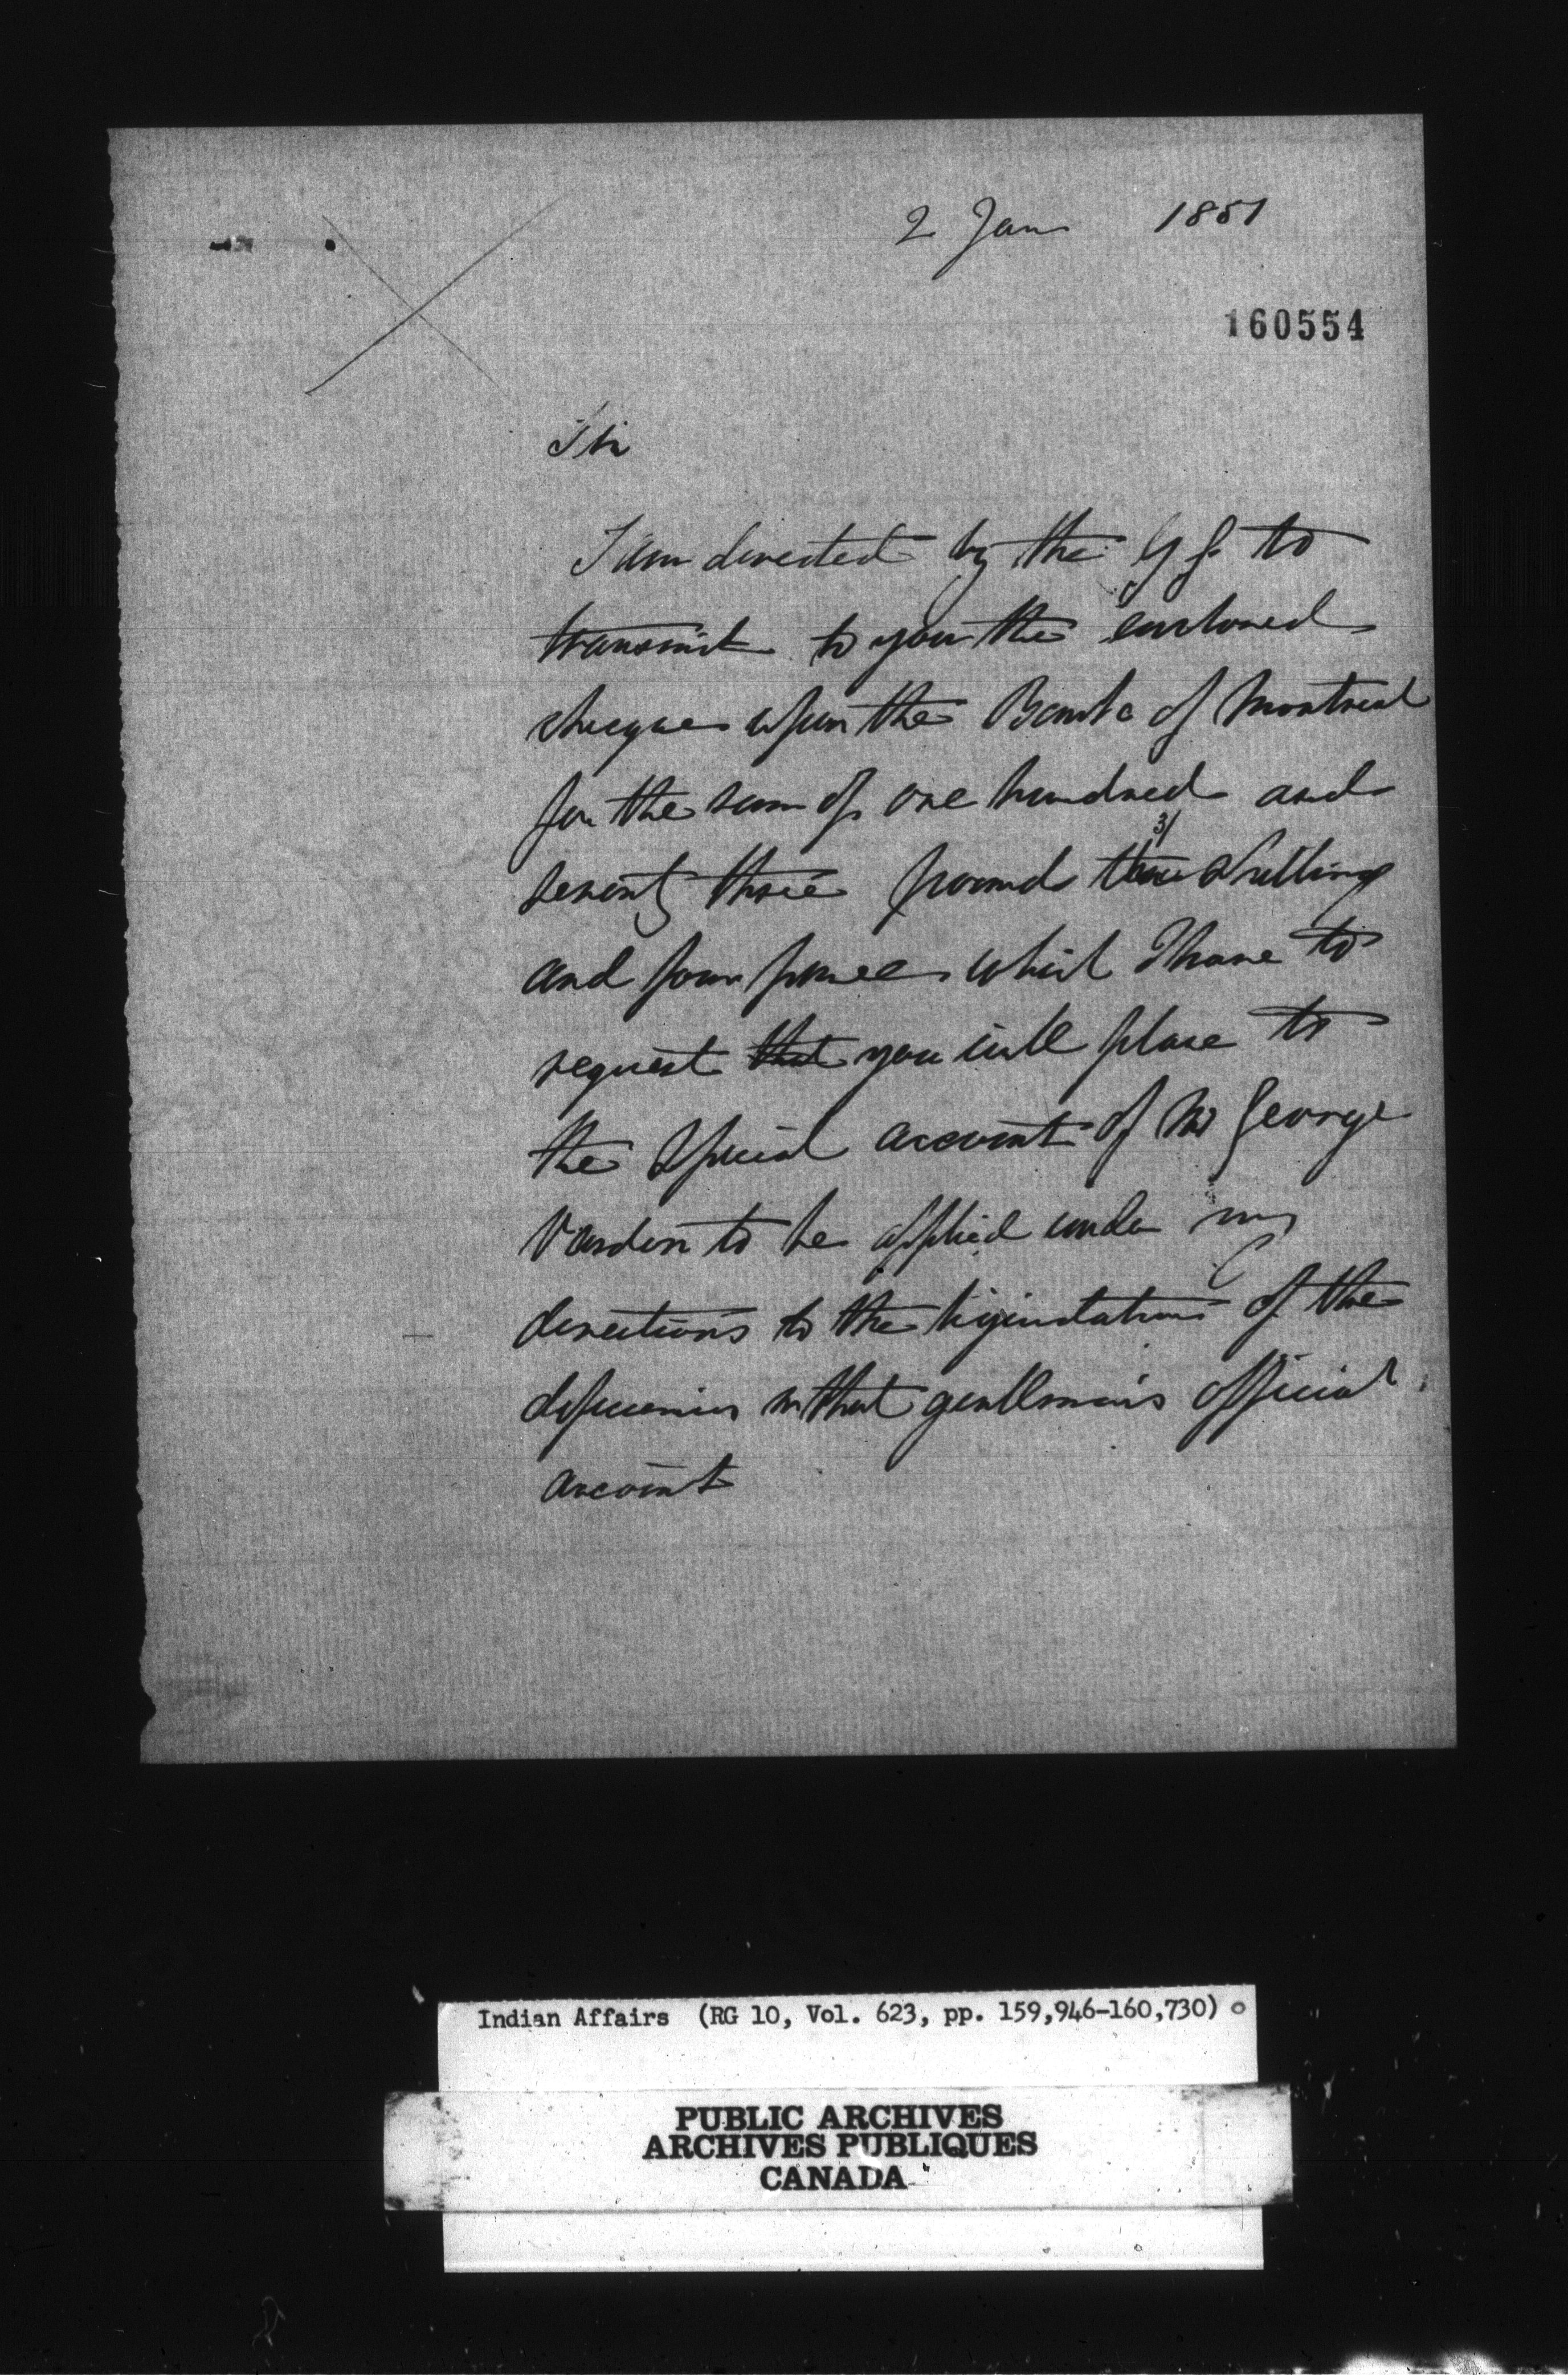 2 Jan 1851
160554
Sir
I am directed by the GG to
transmit to you the enclosed
cheque upon the Bank of Montreal
for the sum of one hundred and
seventy three pounds three 3/ shillings
and four pence which I have to
request that you will place to
the special account of Mr George
Vardon to be applied under my
directions to the liquidation of the
deficiencies in that gentleman's official
account
Indian Affairs (RG 10, Vol. 623, pp. 159,946-160,730)
PUBLIC ARCHIVES
ARCHIVES PUBLIQUES
CANADA